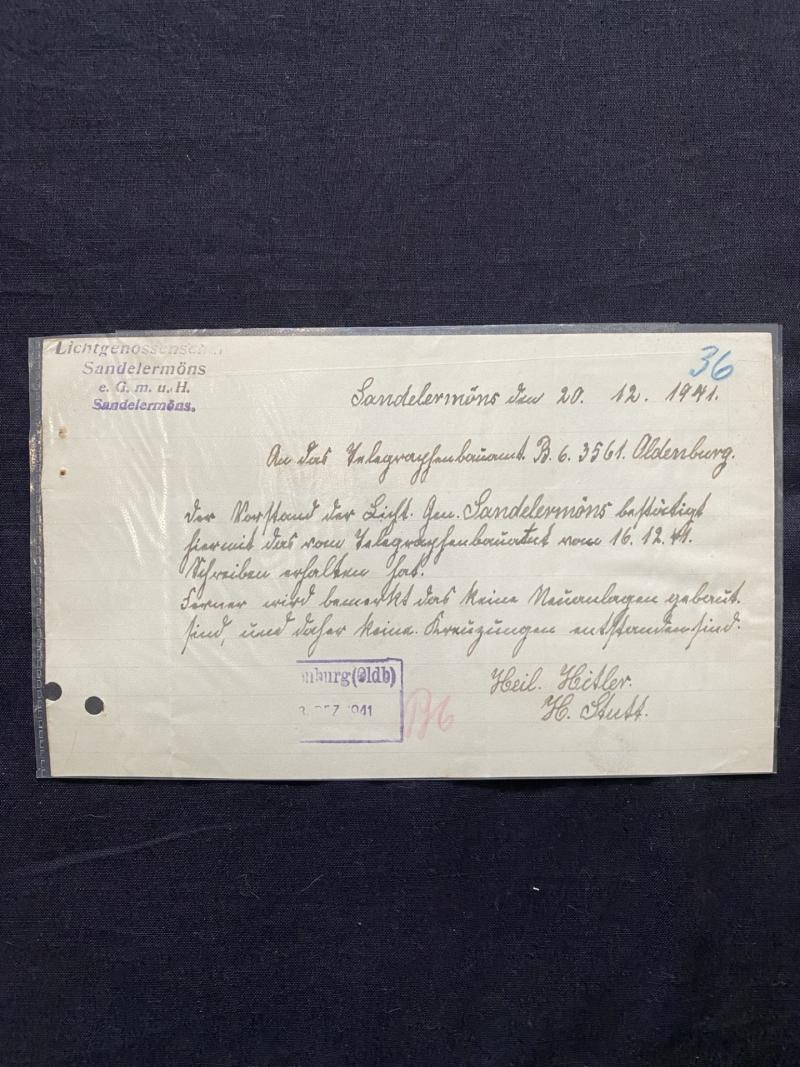 Lichtgenossenschaft
Sandelermöns
e. G. m. u. H.
Sandelermöns.
36
Sandelermöns den 20. 12. 1941.
An das Telegraphenbauamt. B. 6. 3561. Oldenburg.
Der Vorstand der Licht. Gen. Sandelermöns bestätigt
hiermit das vom Telegraphenbauamt vom 16. 12. 41.
Schreiben erhalten hat.
Ferner wird bemerkt das keine Neuanlagen gebaut
sind, und daher keine Kreuzungen entstanden sind.
Heil. Hitler.
H. Stutt.
nburg (Oldb)
DEZ 1941
B6